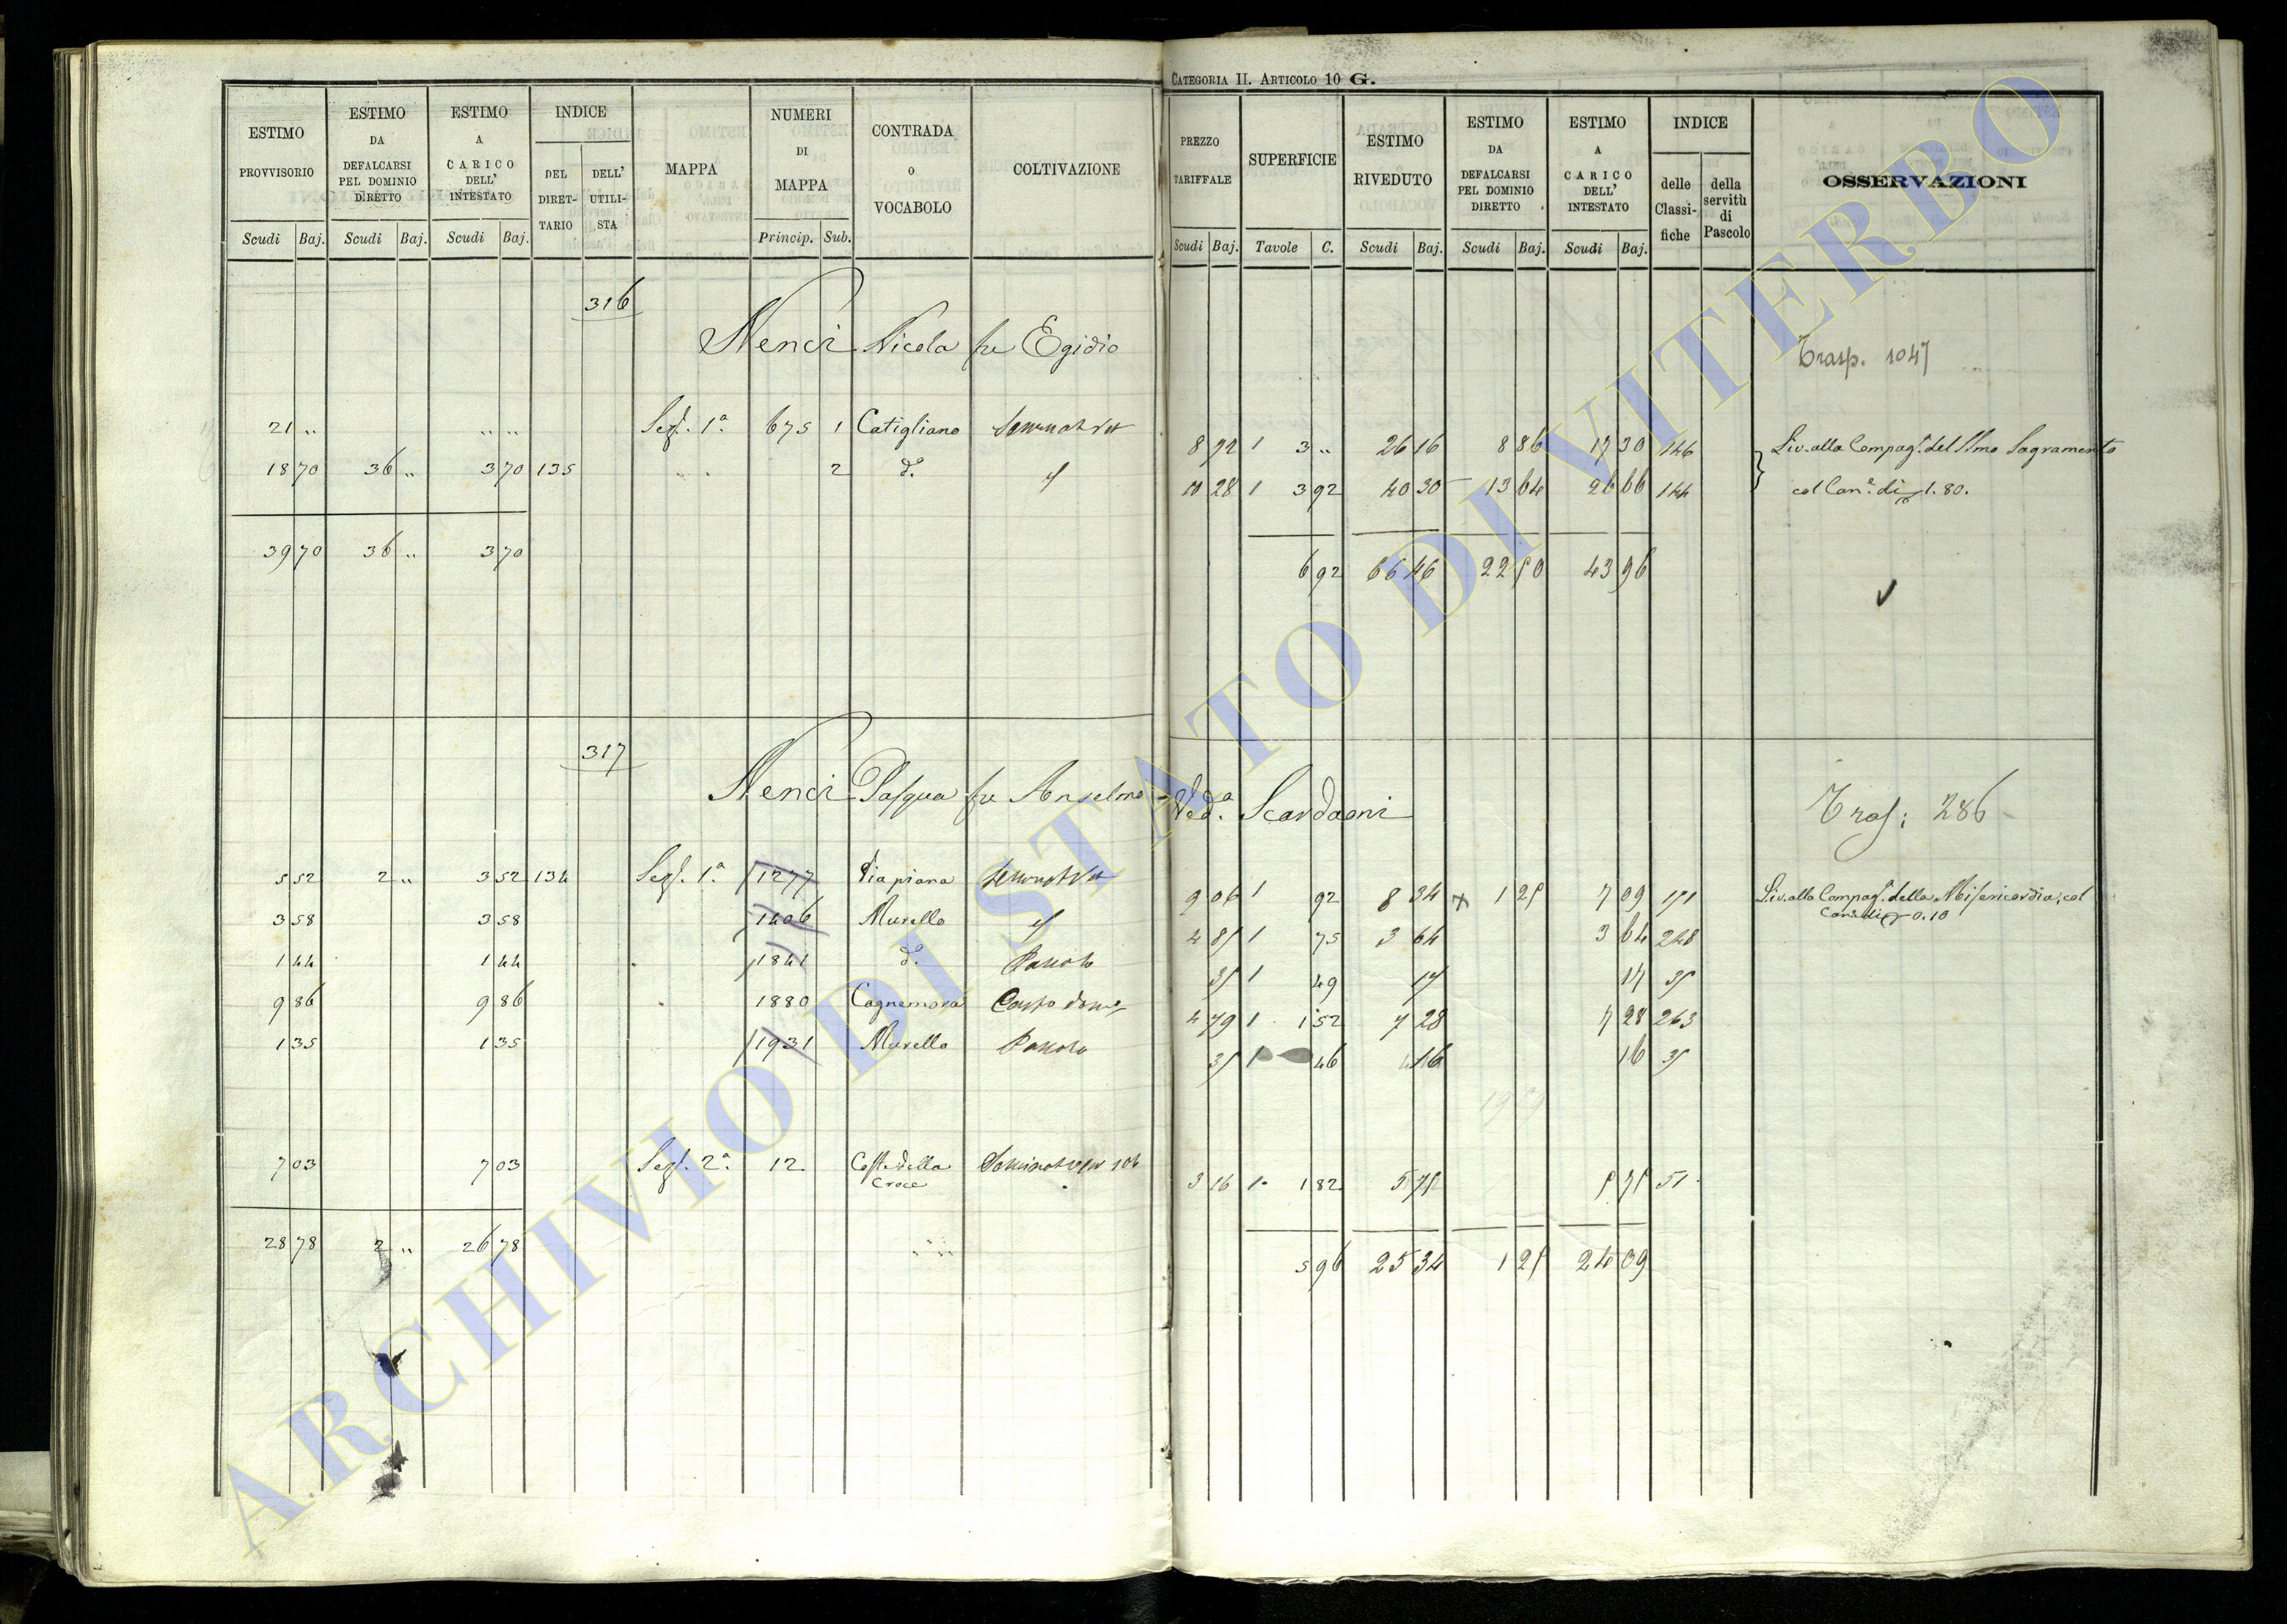 CATEGORIA II. ARTICOLO 10 G.
ESTIMO PROVVISORIO
ESTIMO DA DEFALCARSI PEL DOMINIO DIRETTO
ESTIMO A CARICO DELL' INTESTATO
INDICE
DEL DIRETTARIO
DELL' UTILISTA
MAPPA
NUMERI DI MAPPA
CONTRADA O VOCABOLO
COLTIVAZIONE
PREZZO TARIFFALE
SUPERFICIE
ESTIMO RIVEDUTO
ESTIMO DA DEFALCARSI PEL DOMINIO DIRETTO
ESTIMO A CARICO DELL' INTESTATO
INDICE
delle Classifiche
della servitù di Pascolo
OSSERVAZIONI
Scudi Baj. Scudi Baj. Scudi Baj. Princip. Sub. Scudi Baj. Tavole C. Scudi Baj. Scudi Baj. Scudi Baj.
316
Nenci Nicola fu Egidio
Trasp. 1047
21 „ „ „ Sez. 1ª 675 1 Catigliano 8 72 1 3 „ 26 16 8 86 17 30 146 Liv. alla Compag. del SSmo Sagramento
18 70 36 „ 3 70 135 2 dº 10 28 1 3 92 40 30 13 64 26 66 144 col Can.e di 1.80.
39 70 36 „ 3 70 6 92 66 46 22 50 43 96
317
Nenci Pasqua fu Anselmo = Vedª. Scardaoni
Tras: 286
5 52 2 „ 3 52 134 Sez. 1ª 1277 Via piana 9 06 1 92 8 34 x 1 25 7 09 171 Liv. alla Compag. della Misericordia; col
Can. di 0.10
3 58 3 58 1406 Murello 4 85 1 75 3 64 3 64 248
1 44 1 44 1841 dº 35 1 49 17 17 35
9 86 9 86 1880 Cagnemora 4 79 1 1 52 7 28 7 28 263
1 35 1 35 1931 Murello 35 1 46 16 16 35
7 03 7 03 Sez. 2ª 12 Coste della Croce 3 16 1 1 82 5 75 5 75 51
28 78 2 „ 26 78 5 96 25 34 1 25 24 09
ARCHIVIO DI STATO DI VITERBO